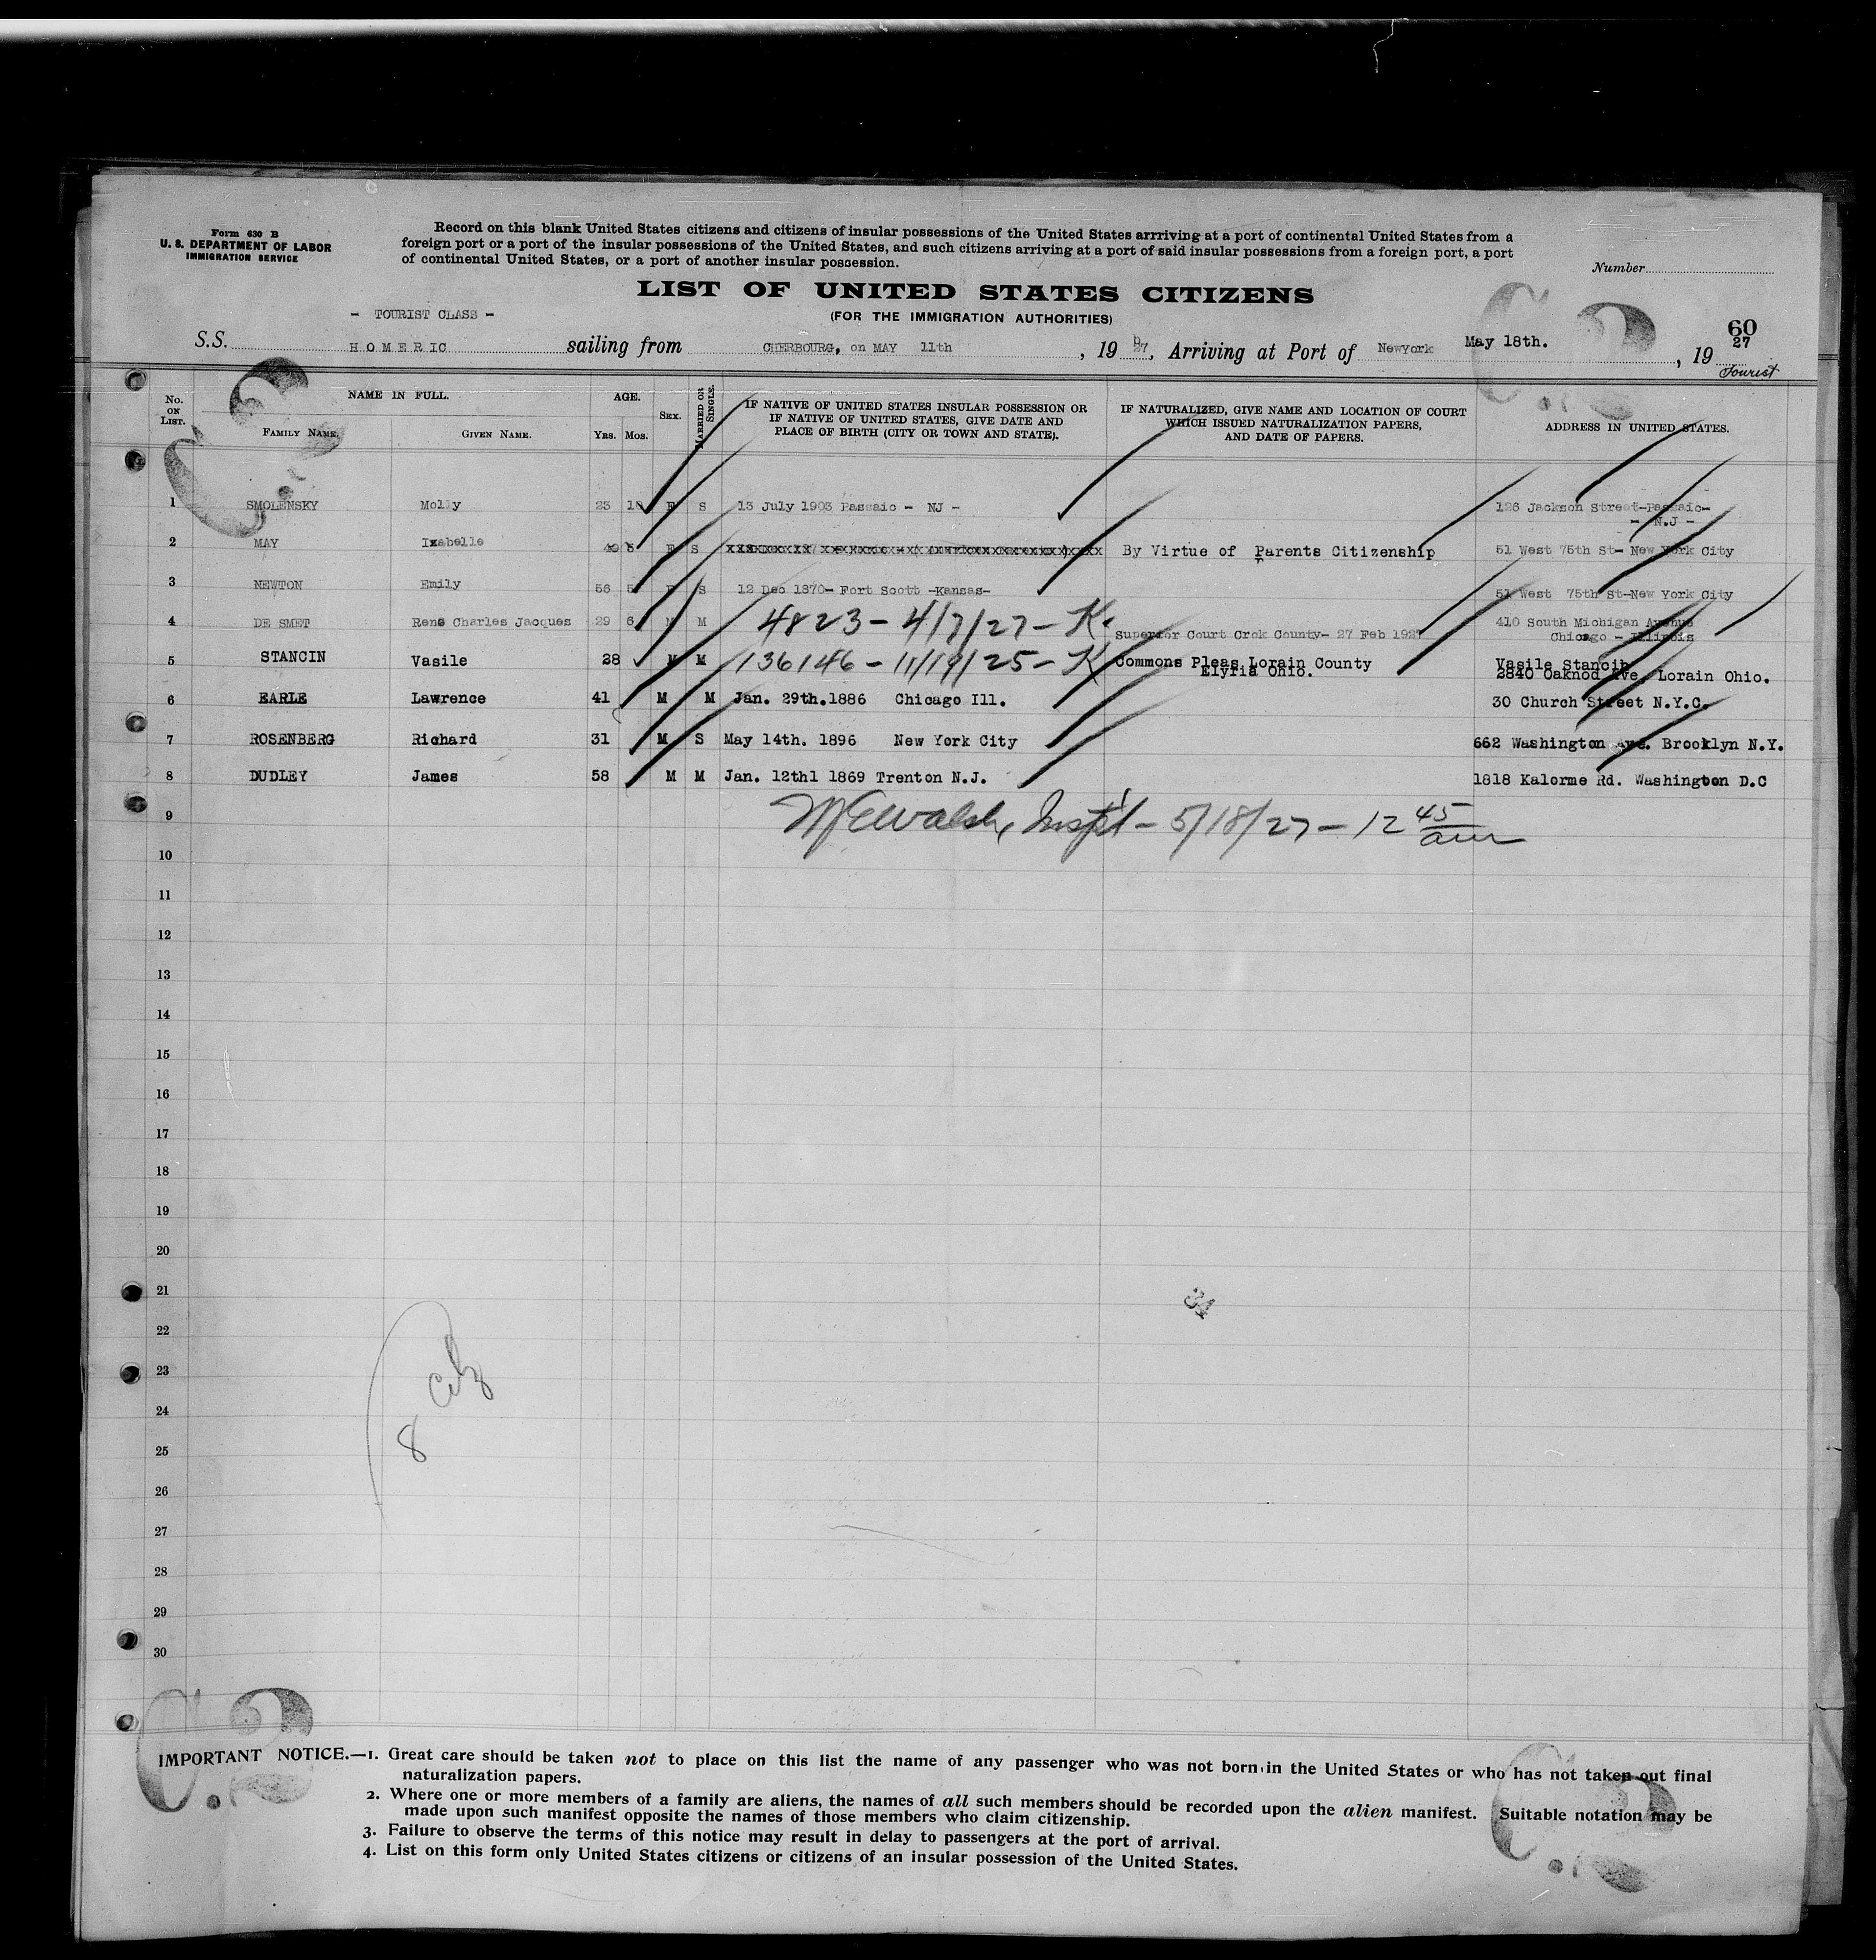 Form 630 B
U. S. DEPARTMENT OF LABOR
IMMIGRATION SERVICE
Record on this blank United States citizens and citizens of insular possessions of the United States arrriving at a port of continental United States from a
foreign port or a port of the insular possessions of the United States, and such citizens arriving at a port of said insular possessions from a foreign port, a port
of continental United States, or a port of another insular possession.
Number
LIST OF UNITED STATES CITIZENS
(FOR THE IMMIGRATION AUTHORITIES)
- TOURIST CLASS -
60
S.S. HOMERIC sailing from CHERBOURG, on MAY 11th, 19 27, Arriving at Port of Newyork May 18th., 19 27
Tourist
No. ON LIST. NAME IN FULL. FAMILY NAME. GIVEN NAME. AGE. Yrs. Mos. SEX. MARRIED OR SINGLE. IF NATIVE OF UNITED STATES INSULAR POSSESSION OR IF NATIVE OF UNITED STATES, GIVE DATE AND PLACE OF BIRTH (CITY OR TOWN AND STATE). IF NATURALIZED, GIVE NAME AND LOCATION OF COURT WHICH ISSUED NATURALIZATION PAPERS, AND DATE OF PAPERS. ADDRESS IN UNITED STATES.
1 SMOLENSKY Molly 23 10 F S 13 July 1903 Passaic - NJ - 126 Jackson Street-Passaic-
- N.J -
2 MAY Izabelle F S By Virtue of Parents Citizenship 51 West 75th St- New York City
3 NEWTON Emily 56 5 F S 12 Dec 1870- Fort Scott -Kansas- 51 West 75th St-New York City
4 DE SMET René Charles Jacques 29 6 M M 4823 - 4/7/27 - K. Superior Court Crok County- 27 Feb 1927 410 South Michigan Avenue
Chicago - Illinois
5 STANCIN Vasile 28 M M 136146 - 11/19/25 - K Commons Pleas Lorain County Vasile Stancin
Elyria Ohio. 2840 Oaknod Ave, Lorain Ohio.
6 EARLE Lawrence 41 M M Jan. 29th.1886 Chicago Ill. 30 Church Street N.Y.C.
7 ROSENBERG Richard 31 M S May 14th. 1896 New York City 662 Washington Ave. Brooklyn N.Y.
8 DUDLEY James 58 M M Jan. 12thl 1869 Trenton N.J. 1818 Kalorme Rd. Washington D.C
9 Walsh, Insp't - 5/18/27 - 12 45 am
10
11
12
13
14
15
16
17
18
19
20
21
34
22
23
24
25
8 citz
26
27
28
29
30
IMPORTANT NOTICE.—1. Great care should be taken not to place on this list the name of any passenger who was not born in the United States or who has not taken out final
naturalization papers.
2. Where one or more members of a family are aliens, the names of all such members should be recorded upon the alien manifest. Suitable notation may be
made upon such manifest opposite the names of those members who claim citizenship.
3. Failure to observe the terms of this notice may result in delay to passengers at the port of arrival.
4. List on this form only United States citizens or citizens of an insular possession of the United States.